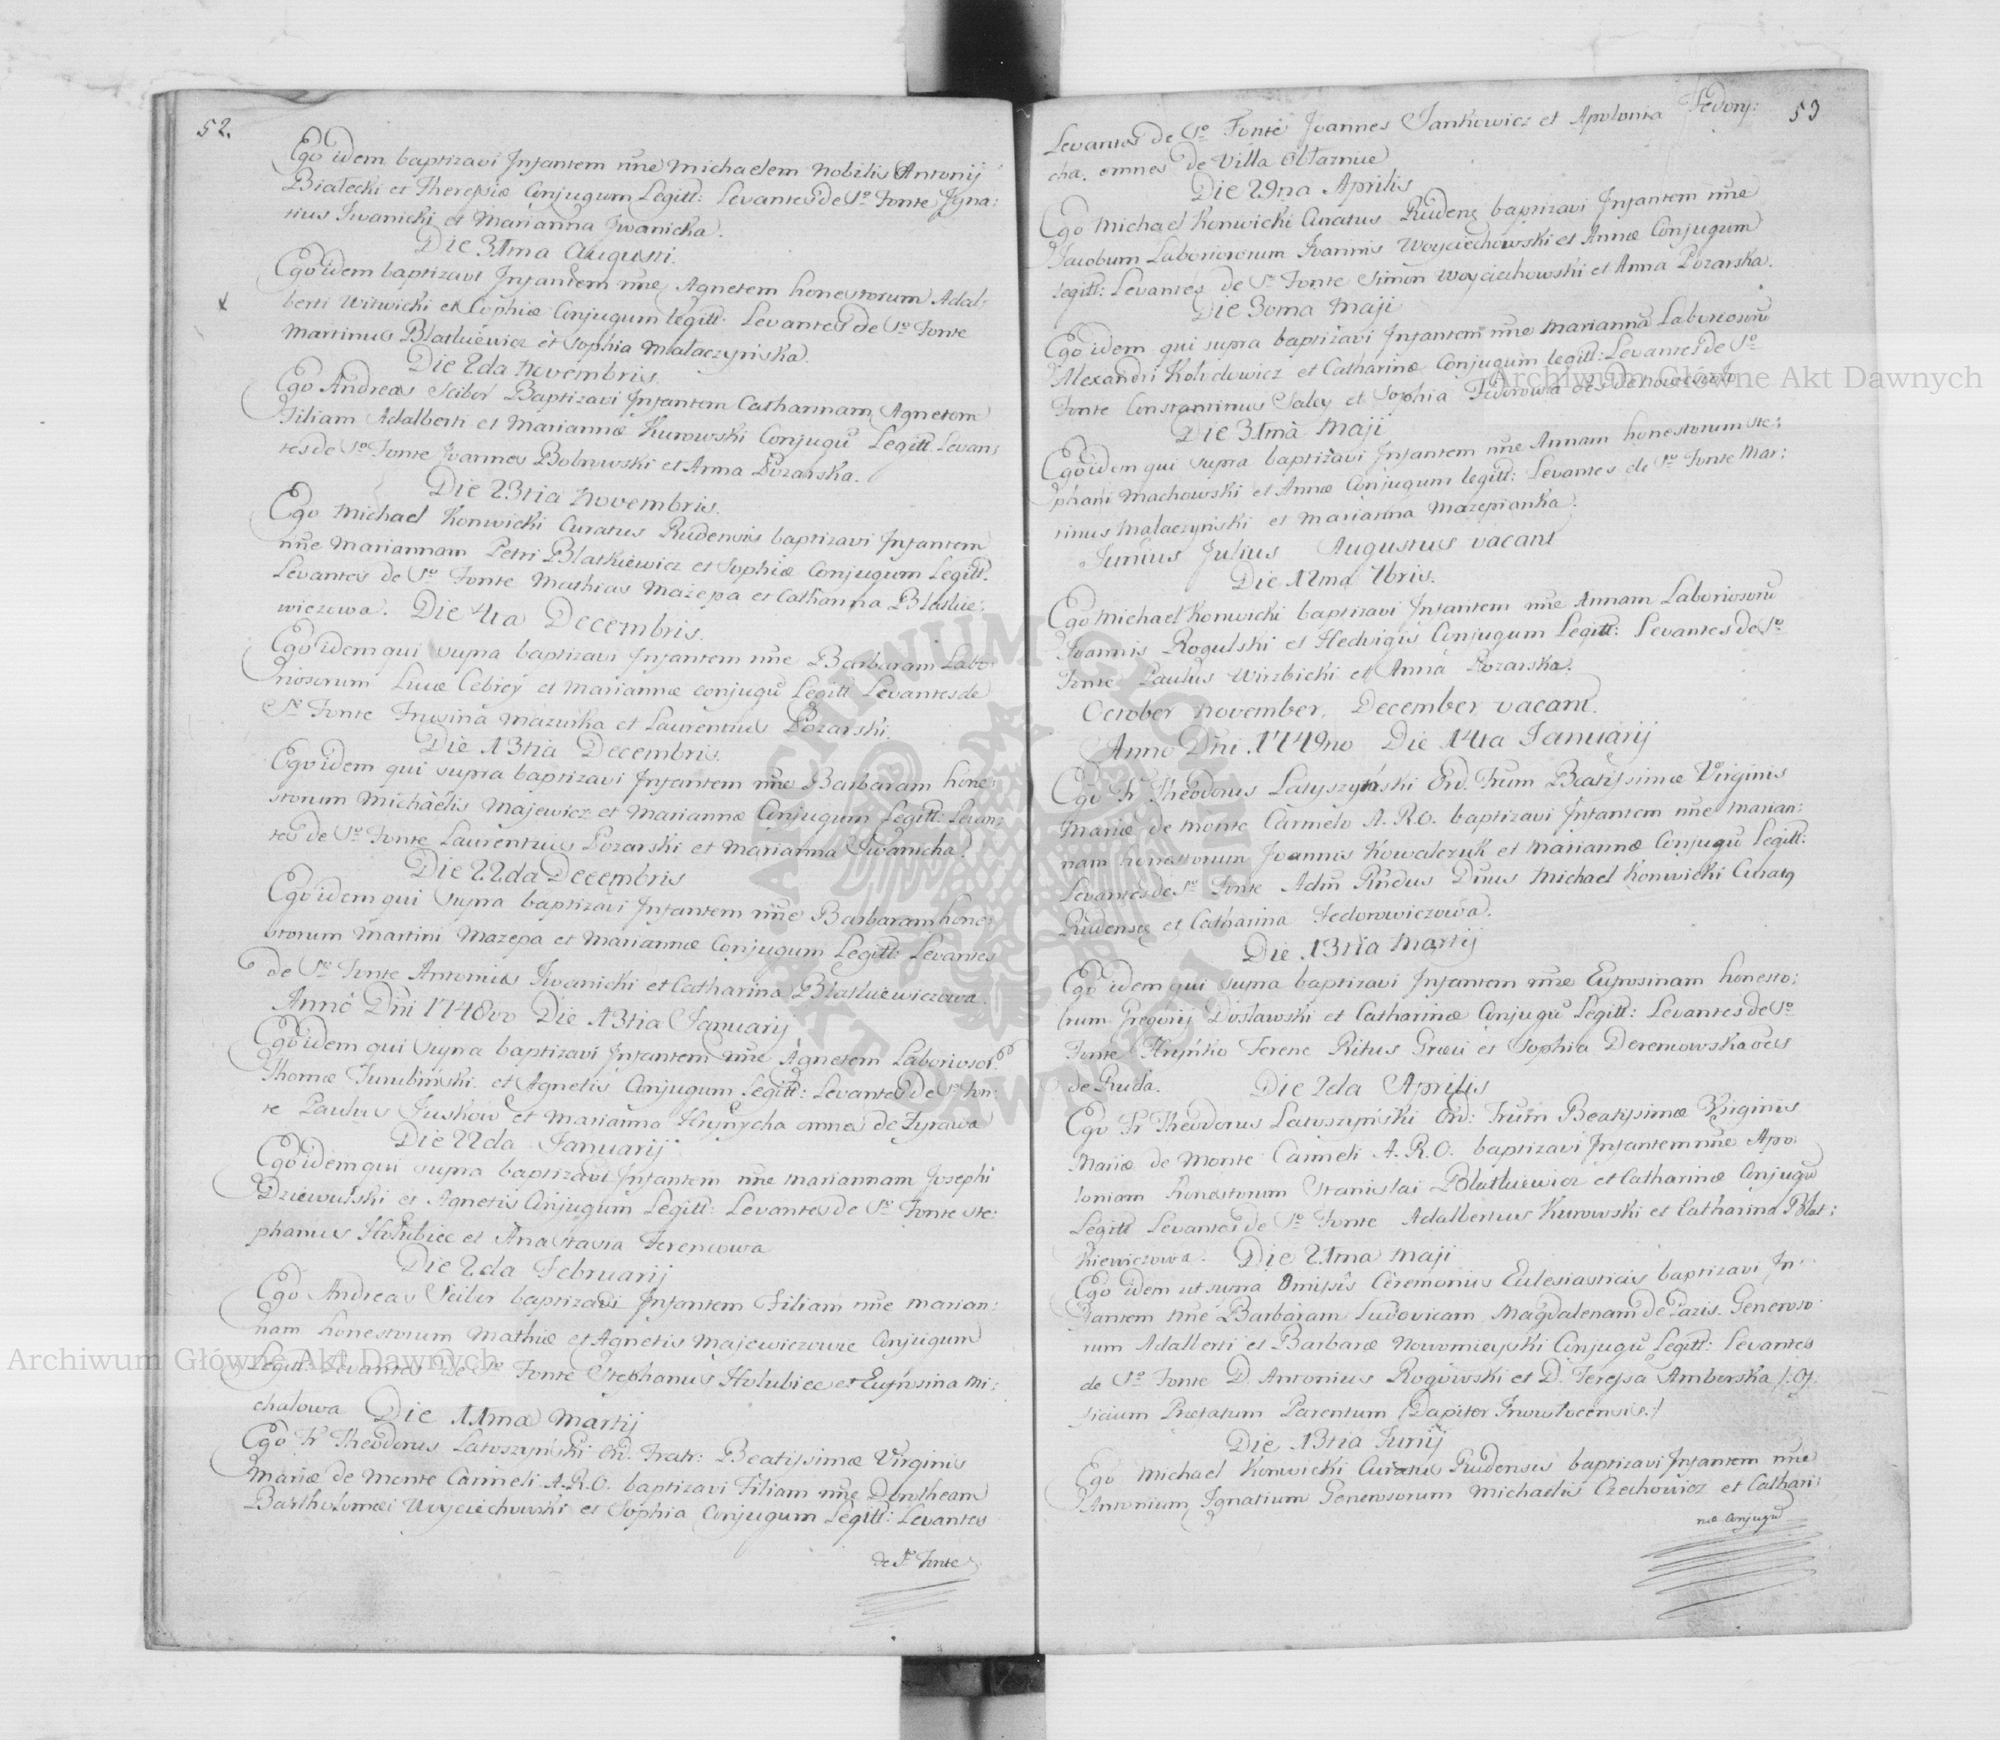 52.
Ego idem baptizavi Infantem nne Michaelem Nobilis Antonij
Białecki et Theresiæ Conjugum Legitt: Levantes de So Fonte Igna:
tius Iwanicki et Marianna Iwanicka.
Die 31ma Augusti.
Ego idem baptizavi Infantem nne Agnetem honestorum Adal:
berti Witwicki et Sophiæ Conjugum legitt: Levantes de So Fonte
Martinus Blatkiewicz et Sophia Małaczyńska.
Die 2da Novembris.
Ego Andreas Scibor Baptizavi Infantem Catharinam, Agnetem
Filiam Adalberti et Mariannæ Kurowski Conjugu Legitt Levan:
tes de So Fonte Joannes Bobrowski et Anna Pozarska.
Die 23tia Novembris.
Ego Michael Konwicki Curatus Rudensis baptizavi Infantem
nne Mariannam Petri Blatkiewicz et Sophiæ Conjugum Legitt.
Levantes de So Fonte Mathias Mazepa et Catharina Blatkie:
wiczowa. Die 4ta Decembris.
Ego idem qui supra baptizavi Infantem nne Barbaram Labo:
riosorum Lucæ Cebrey et Mariannæ conjugu Legitt Levantes de
So Fonte Frusina Mazurka et Laurentius Pozarski.
Die 13tia Decembris.
Ego idem qui supra baptizavi Infantem nne Barbaram hone:
storum Michaelis Majewicz et Mariannæ Conjugum Legitt: Levan:
tes de So Fonte Laurentius Pozarski et Marianna Iwanicka.
Die 22da Decembris
Ego idem qui supra baptizavi Infantem nne Barbaram hone:
storum Martini Mazepa et Mariannæ Conjugum Legitt: Levantes
de So Fonte Antonius Iwanicki et Catharina Blatkiewiczowa.
Anno Dni 1748vo Die 13tia Januarij
Ego idem qui supra baptizavi Infantem nne Agnetem Laborioso:
Thomæ et Agnetis Conjugum Legitt: Levantes de So Fon:
te Paulus Juskow et Marianna Hrynycha omnes de Zyrawa
Die 22da Januarij
Ego idem qui supra baptizavi Infantem nne Mariannam Josephi
Dziewulski et Agnetis Conjugum Legitt: Levantes de So Fonte Ste:
phanus Hołubiec et Anastasia Ferencowa
Die 2da Februarij
Ego Andreas Scibor baptizavi Infantem Filiam nne Marian:
nam honestorum Mathiæ et Agnetis Majewiczowie Conjugum
Legitt: Levantes de So Fonte Stephanus Hołubiec et Eufrosina Mi:
chalowa Die 11ma Martij
Ego Fr Theodorus Latoszyński Ord. Fratr: Beatissimæ Virginis
Mariæ de Monte Carmeli A.R.O. baptizavi Filiam nne Dorotheam
Bartholomæi Woyciechowski et Sophia Conjugum Legitt: Levantes
de So Fonte
53
Levantes de So Fonte Joannes Jankowicz et Apolonia Fedory:
cha. omnes de Villa Obłaznice
Die 29na Aprilis
Ego Michael Konwicki Curatus Rudens baptizavi Infantem nne
Jacobum Laboriosorum Joannis Woyciechowski et Annæ Conjugum
legitt: Levantes de So Fonte Simon Woyciechowski et Anna Pozarska.
Die 30ma Maji
Ego idem qui supra baptizavi Infantem nne Marianna Laboriosoru
Alexandri Kolodowicz et Catharinæ Conjugum legitt: Levantes de So
Fonte Constantinus Saley et Sophia Fedorowa oes de
Die 31ma Maji
Ego idem qui supra baptizavi Infantem nne Annam honestorum Ste:
phani Machowski et Annæ Conjugum legitt: Levantes de So Fonte Mar:
tinus Małaczyński et Marianna Mazepianka.
Junius Julius Augustus vacant
Die 12ma 7bris.
Ego Michael Konwicki baptizavi Infantem nne Annam Laboriosoru
Joannis Rogulski et Hedvigis Conjugum Legitt: Levantes de So
Fonte Paulus Wirzbicki et Anna Pozarska.
October November, December vacant.
Anno Dni. 1749no Die 14ta Januarij
Ego Fr Theodorus Latyszyński Ord. Frum Beatissimæ Virginis
Mariæ de Monte Carmelo A.R.O. baptizavi Infantem nne Marian:
nam honestorum Joannis Kowalczuk et Mariannæ Conjugu Legitt:
Levantes de So Fonte Adm Rndus Dnus Michael Konwicki Curatg
Rudensis et Catharina Fedorowiczowa.
Die 13tia Martij
Ego idem qui supra baptizavi Infantem nne Eufrosinam honesto:
rum Gregorij Dosławski et Catharinæ Conjugu Legitt: Levantes de So
Fonte Hryńko Ferenc Ritus Græci et Sophia Deremowska oes
de Ruda. Die 2da Aprilis
Ego Fr Theodorus Latoszyński Ord: Frum Beatissimæ Virginis
Mariæ de Monte Carmeli A.R.O. baptizavi Infantem nne Apo:
loniam honestorum Stanislai Blatkiewicz et Catharinæ Conjugu
Legitt Levantes de So Fonte Adalbertus Kurowski et Catharina Blat:
kiewiczowa. Die 21ma Maji
Ego idem ut supra Omissis Ceremoniis Ecclesiasticis baptizavi In:
fantem nne Barbaram Ludovicam Magdalenam de Pazis. Generoso:
rum Adalberti et Barbaræ Nowomieyski Conjugu Legitt: Levantes
de So Fonte D. Antonius Rogowski et D. Teressa Amborska /: Of:
ficium Præfatum Parentum Dapifer :/
Die 13tia Junij
Ego Michael Konwicki Curatus Rudensis baptizavi Infantem nne
Antonium, Ignatium Generosorum Michaelis Czechowicz et Cathari:
næ Conjugu
Archiwum Główne Akt Dawnych
Archiwum Główne Akt Dawnych
ARCHIWUM GŁÓWNE AKT DAWNYCH